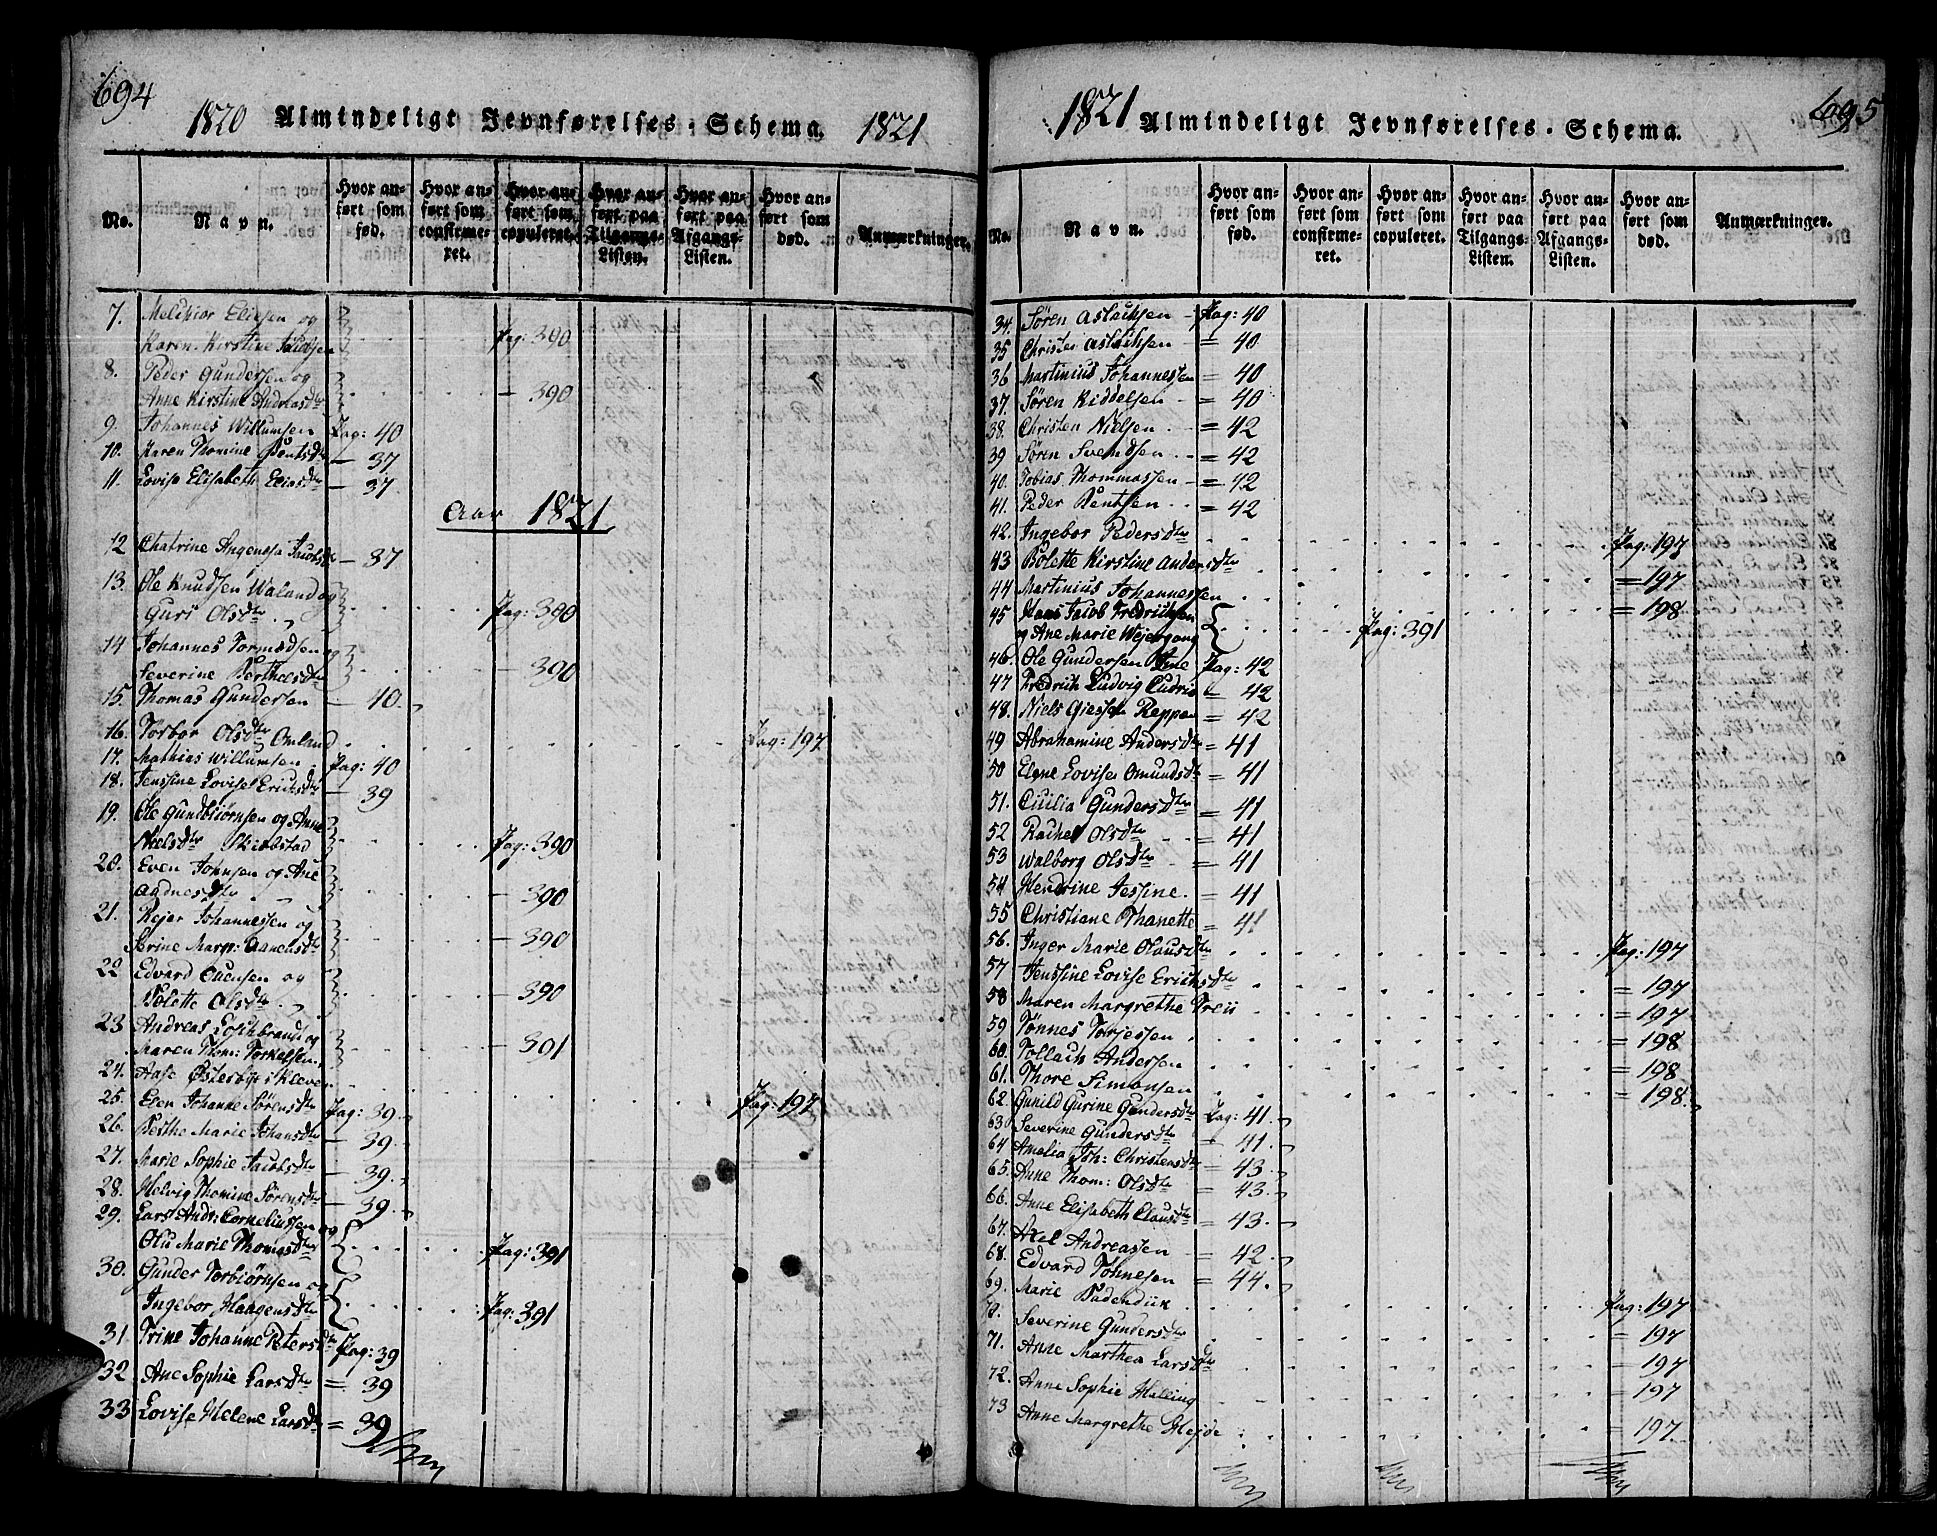 694
1820 Almindeligt Jevnførelses-Schema. 1821
No. Navn. Hvor anført som fød. Hvor anført som confirmeret. Hvor anført som copuleret. Hvor anført paa Tilgangs-Listen. Hvor anført paa Afgangs-Listen. Hvor anført som død. Anmærkninger.
7. Melkior Eliesen og
Karen Kirstine Jacobsen Pag: 390
8. Peder Gundersen og
Anne Kirstine Andreasdtr — 390
9. Johannes Willumsen Pag: 40
10. Karen Thomine Bentsdtr — 37
11. Lovise Elisabeth Eliasdtr — 37
Aar 1821
12 Chatrine Angenesa Jacobsdtr — 37
13. Ole Knudsen Waland og
Guri Olsdtr Pag: 390
14 Johannes Tormodsen og
Severine Berthelsdtr — 390
15. Thomas Gundersen — 40.
16. Torbor Olsdtr Omland Pag: 197
17. Mathias Willumsen Pag: 40
18. Jenssine Lovise Ericksdtr — 39
19. Ole Gundbiørnsen og Anne
Nielsdtr Skibstad Pag: 390
20. Even Johnsen og Ane
Aadnesdtr — 390
21. Rejer Johannessen og
Serine Margr: Aanensdtr — 390
22 Edvard Evensen og
Bolette Olsdtr — 390
23 Andreas Loschbrandt og
Maren Thom: Torkelsen — 301
24. Aase Østerbye i Kleven Pag: 197
25. Elen Johanne Sørensdtr Pag: 39.
26. Berthe Marie Johansdtr — 39.
27. Marie Sophie Jacobsdtr — 39.
28. Helvig Thomine Sørensdtr — 39.
29. Lars Andr: Corneliussen og
Olu Marie Thomasdtr Pag: 391
30. Gunder Torbiørnsen og
Ingebor Haagensdtr Pag: 391
31. Trine Johanne Petersdtr Pag: 39
32 Ane Sophie Larsdtr = 39
33 Lovise Helene Larsdtr = 39
695
1821 Almindeligt Jevnførelses-Schema.
No. Navn. Hvor anført som fød. Hvor anført som confirmeret. Hvor anført som copuleret. Hvor anført paa Tilgangs-Listen. Hvor anført paa Afgangs-Listen. Hvor anført som død. Anmærkninger.
34. Søren Aslachsen Pag: 40
35 Christen Aslachsen = 40
36 Martinius Johannessen = 40
37. Søren Kiddelsen = 40
38. Christen Nielsen = 42
39 Søren Svendsen = 42
40. Tobias Thommassen = 42
41. Peder Bentsen = 42
42. Ingebor Pedersdtr Pag: 197
43 Bolette Kirstine Andersdtr = 197
44 Martinius Johannessen = 198
45 Hans Jacob Fredrichsen
og Ane Marie Wejergang Pag: 391
46. Ole Gundersen Pag: 42
47 Fredrich Ludvig = 42
48. Niels Giessen Reppen = 42
49 Abrahamine Andersdtr = 41
50 Elene Lovise Omundsdtr = 41
51. Cicilia Gundersdtr = 41
52 Rachel Olsdtr = 41
53 Walborg Olsdtr = 41
54 Hendrine Jessine = 41
55 Christiane Thanette = 41
56. Inger Marie Olausdtr Pag: 197
57 Jenssine Lovise Erichsdtr = 197
58 Maren Margrethe Treii = 197
59 Tønnes Torjessen = 198
60. Tollach Andersen = 198
61. Thore Simonsen = 198.
62. Gunild Gurine Gundersdtr Pag: 41.
63 Severine Gundersdtr = 41.
64 Amalia Joh: Christensdtr = 43.
65. Anne Thom: Olsdtr = 43.
66. Anne Elisabeth Clausdtr = 43.
67. Axel Andreassen = 42.
68. Edvard Tønnesen = 44.
69. Marie Badendiik Pag: 197
70. Severine Gundersdtr = 197
71. Anne Marthea Larsdtr = 197
72. Anne Sophie Halling = 197
73 Anne Margrethe Hejde = 197